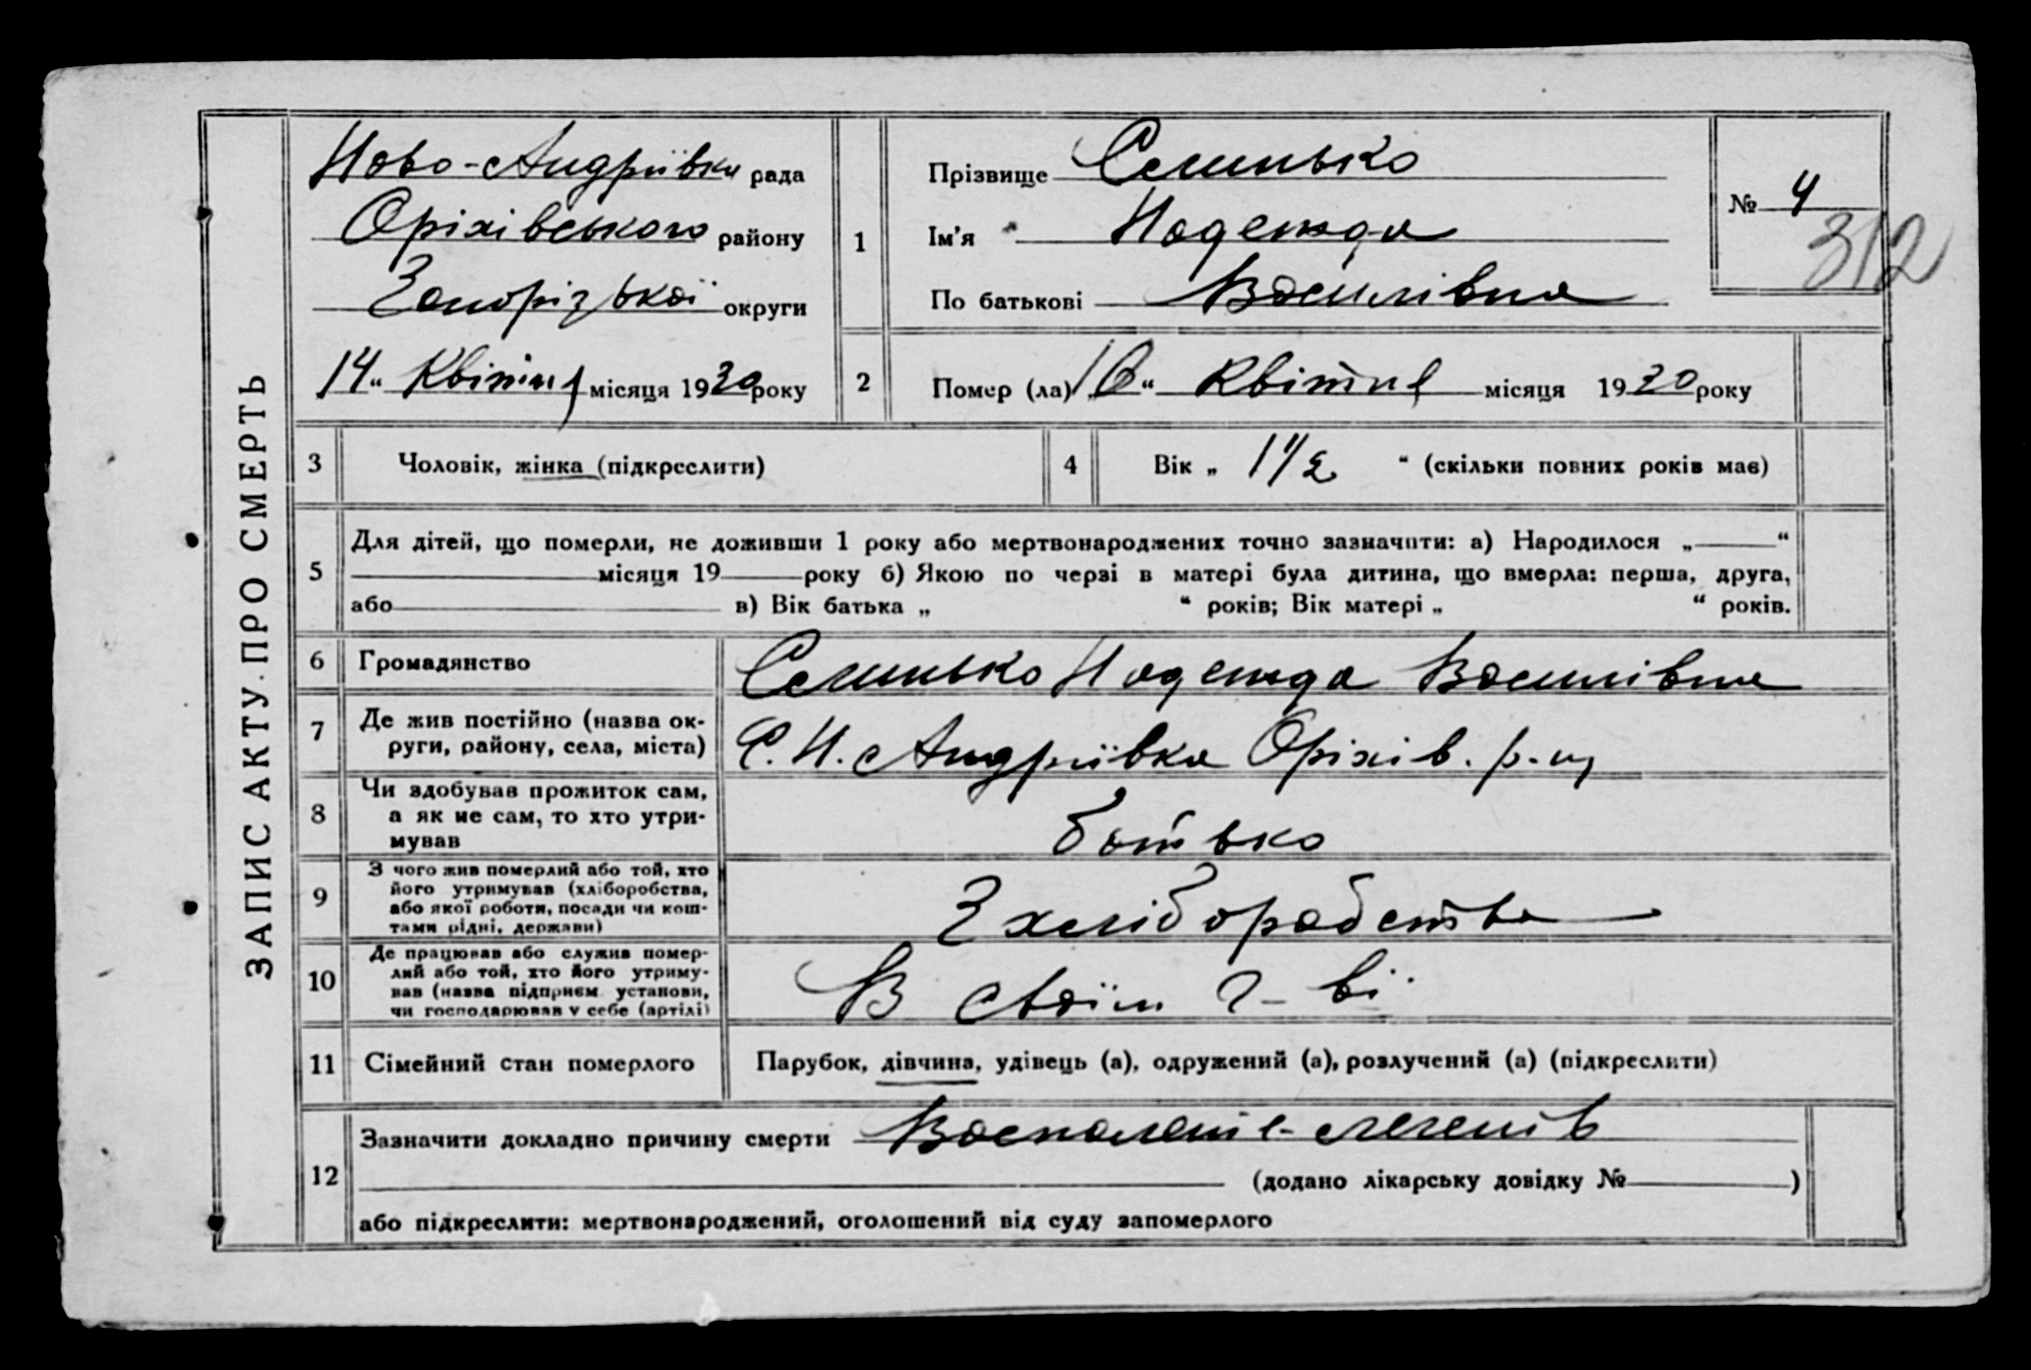 ЗАПИС АКТУ ПРО СМЕРТЬ
Ново-Андріївка рада
Оріхівського району
Запорізької округи
14 " Квітня місяця 1930 року
1
Прізвище Семинько
Ім'я Надежда
По батькові Василівна
№ 4
312
2
Помер (ла) 10 " Квітня місяця 1930 року
3 Чоловік, жінка (підкреслити)
4 Вік „ 1 1/2 " (скільки повних років має)
5
Для дітей, що померли, не доживши 1 року або мертвонароджених точно зазначити: а) Народилося „ "
місяця 19 року б) Якою по черзі в матері була дитина, що вмерла: перша, друга,
або в) Вік батька „ " років; Вік матері „ " років.
6 Громадянство Семинько Надежда Василівна
7 Де жив постійно (назва ок-
руги, району, села, міста) С. Н. Андріївка Оріхів. р-ну
8 Чи здобував прожиток сам,
а як не сам, то хто утри-
мував батько
9 З чого жив померлий або той, хто
його утримував (хліборобства,
або якої роботи, посади чи кош-
тами рідні, держави) З хліборобства
10 Де працював або служив помер-
лий або той, хто його утриму-
вав (назва підприєм. установи,
чи господарював у себе (артілі) В своїм г-ві
11 Сімейний стан померлого Парубок, дівчина, удівець (а), одружений (а), розлучений (а) (підкреслити)
12
Зазначити докладно причину смерти Воспаление легенів
(додано лікарську довідку № )
або підкреслити: мертвонароджений, оголошений від суду запомерлого